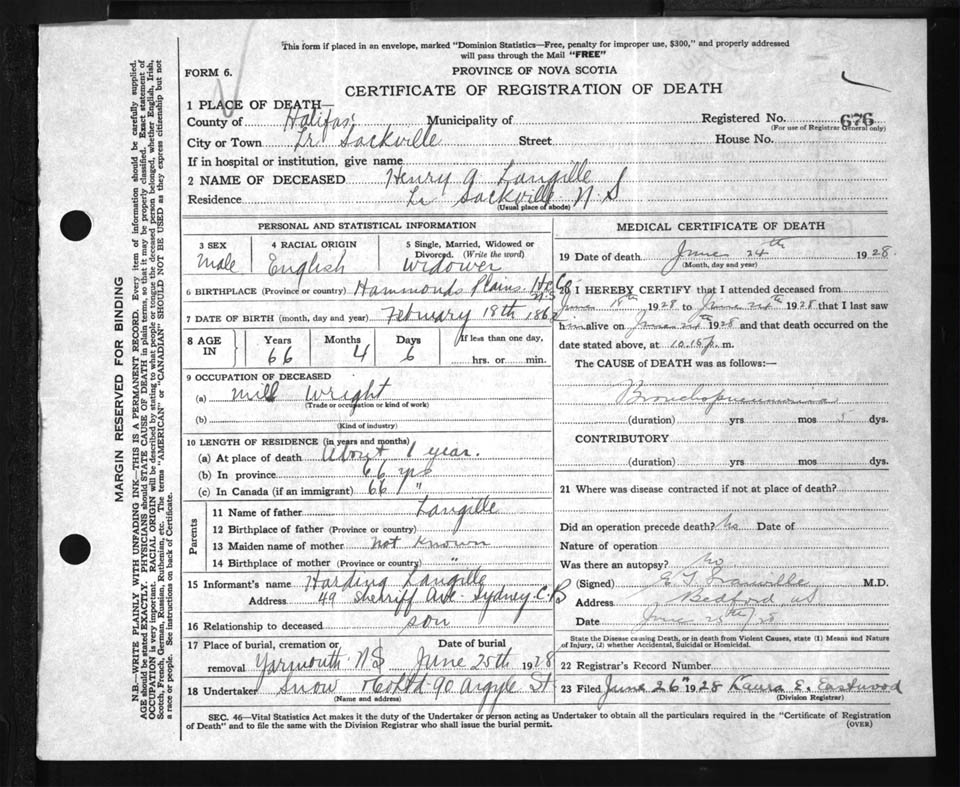 This form if placed in an envelope, marked "Dominion Statistics—Free, penalty for improper use, $300," and properly addressed
will pass through the Mail "FREE"
FORM 6.
PROVINCE OF NOVA SCOTIA
CERTIFICATE OF REGISTRATION OF DEATH
1 PLACE OF DEATH—
County of Halifax Municipality of Registered No. 676
(For use of Registrar General only)
City or Town Lr Sackville Street House No.
If in hospital or institution, give name
2 NAME OF DECEASED Henry A Langille
Residence Lr Sackville N S
(Usual place of abode)
PERSONAL AND STATISTICAL INFORMATION
3 SEX 4 RACIAL ORIGIN 5 Single, Married, Widowed or
Divorced. (Write the word)
Male English Widower
6 BIRTHPLACE (Province or country) Hammonds Plains Hx Co
N.S
7 DATE OF BIRTH (month, day and year) February 18th 1862
8 AGE IN Years Months Days If less than one day,
66 4 6 hrs. or min.
9 OCCUPATION OF DECEASED
(a) Mill Wright
(Trade or occupation or kind of work)
(b)
(Kind of industry)
10 LENGTH OF RESIDENCE (in years and months)
(a) At place of death About 1 year.
(b) In province 66 yrs
(c) In Canada (if an immigrant) 66 "
Parents
11 Name of father Langille
12 Birthplace of father (Province or country)
13 Maiden name of mother not known
14 Birthplace of mother (Province or country) "
15 Informant's name Harding Langille
Address 49 Sherriff Ave Sydney C.B
16 Relationship to deceased son
17 Place of burial, cremation or Date of burial
removal Yarmouth NS June 25th 1928
18 Undertaker Snow & Co Ltd 90 Argyle St
(Name and address)
MEDICAL CERTIFICATE OF DEATH
19 Date of death June 24th 1928
(Month, day and year)
20 I HEREBY CERTIFY that I attended deceased from
June 18th 1928 to June 24th 1928 that I last saw
him alive on June 24th 1928 and that death occurred on the
date stated above, at 10.15 p. m.
The CAUSE of DEATH was as follows:—
Bronchopneumonia
(duration) yrs mos dys.
CONTRIBUTORY
(duration) yrs mos dys.
21 Where was disease contracted if not at place of death?
Did an operation precede death? No Date of
Nature of operation
Was there an autopsy? No
(Signed) M.D.
Address Bedford NS
Date June 25th/28
State the Disease causing Death, or in death from Violent Causes, state (1) Means and Nature
of Injury, (2) whether Accidental, Suicidal or Homicidal.
22 Registrar's Record Number
23 Filed June 26th 1928 Laura E. Eastwood
(Division Registrar)
SEC. 46—Vital Statistics Act makes it the duty of the Undertaker or person acting as Undertaker to obtain all the particulars required in the "Certificate of Registration
of Death" and to file the same with the Division Registrar who shall issue the burial permit.
(OVER)
MARGIN RESERVED FOR BINDING
N.B.—WRITE PLAINLY WITH UNFADING INK—THIS IS A PERMANENT RECORD. Every item of information should be carefully supplied.
AGE should be stated EXACTLY. PHYSICIANS should STATE CAUSE OF DEATH in plain terms, so that it may be properly classified. Exact statement of
OCCUPATION is very important. RACIAL ORIGIN will be described by stating to what people or tongue the deceased person belonged, whether English, Irish,
Scotch, French, German, Russian, Ruthenian, etc. The terms "AMERICAN" or "CANADIAN" SHOULD NOT BE USED as they express citizenship but not
a race or people. See instructions on back of Certificate.